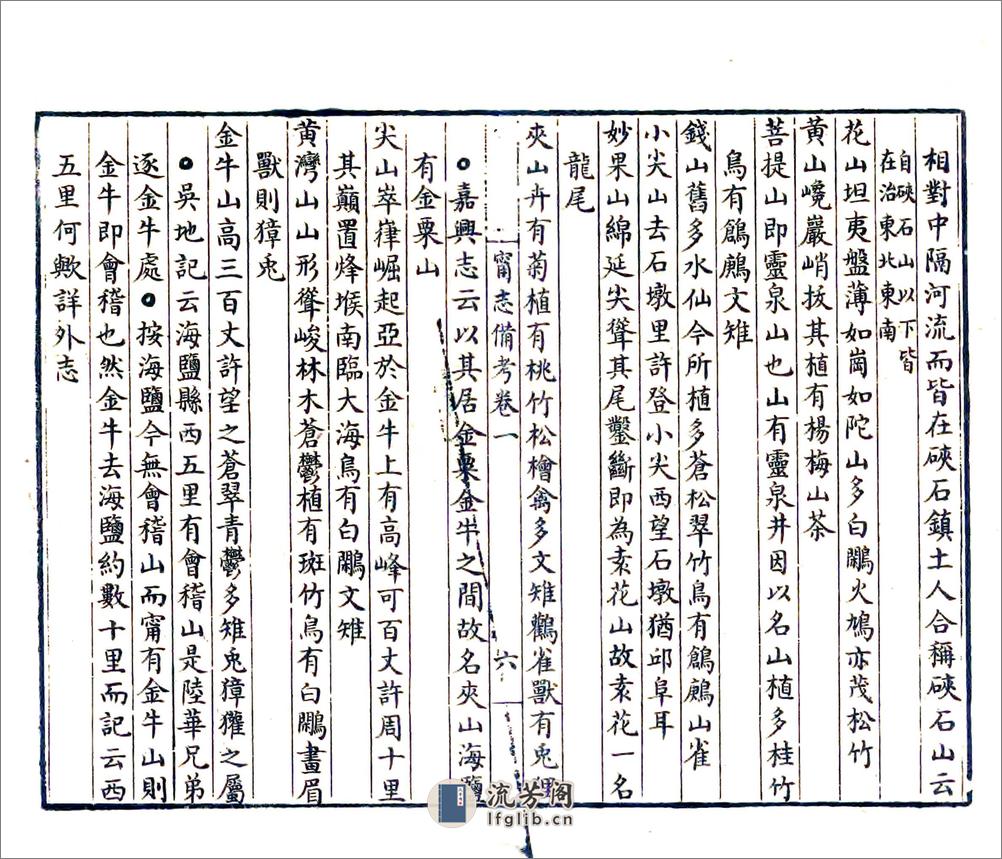 相對中隔河流而皆在硤石鎮土人合稱硤石山云
自硤石山以下皆
在治東北東南
花山坦夷盤薄如崗如陀山多白鷴火鳩亦茂松竹
黄山嶢巖峭拔其植有楊梅山茶
菩提山即靈泉山也山有靈泉井因以名山植多桂竹
鳥有鶬鷓文雉
錢山舊多水仙今所植多蒼松翠竹鳥有鶬鷓山雀
小尖山去石墩里許登小尖西望石墩猶邱阜耳
妙果山綿延尖聳其尾鑿斷即為袁花山故袁花一名
龍尾
夾山卉有菊植有桃竹松檜禽多文雉鸛雀獸有兎貍
甯志備考卷一
六
嘉興志云以其居金粟金牛之間故名夾山海鹽
有金粟山
尖山崒嵂崛起亞於金牛上有高峰可百丈許周十里
其巔置烽堠南臨大海鳥有白鷴文雉
黄灣山山形聳峻林木蒼鬱植有斑竹鳥有白鷴畫眉
獸則獐兎
金牛山高三百丈許望之蒼翠青鬱多雉兎獐玃之屬
吳地記云海鹽縣西五里有會稽山是陸華兄弟
逐金牛處 按海鹽今無會稽山而甯有金牛山則
金牛即會稽也然金牛去海鹽約數十里而記云西
五里何歟詳外志
流芳阁
lfglib.cn